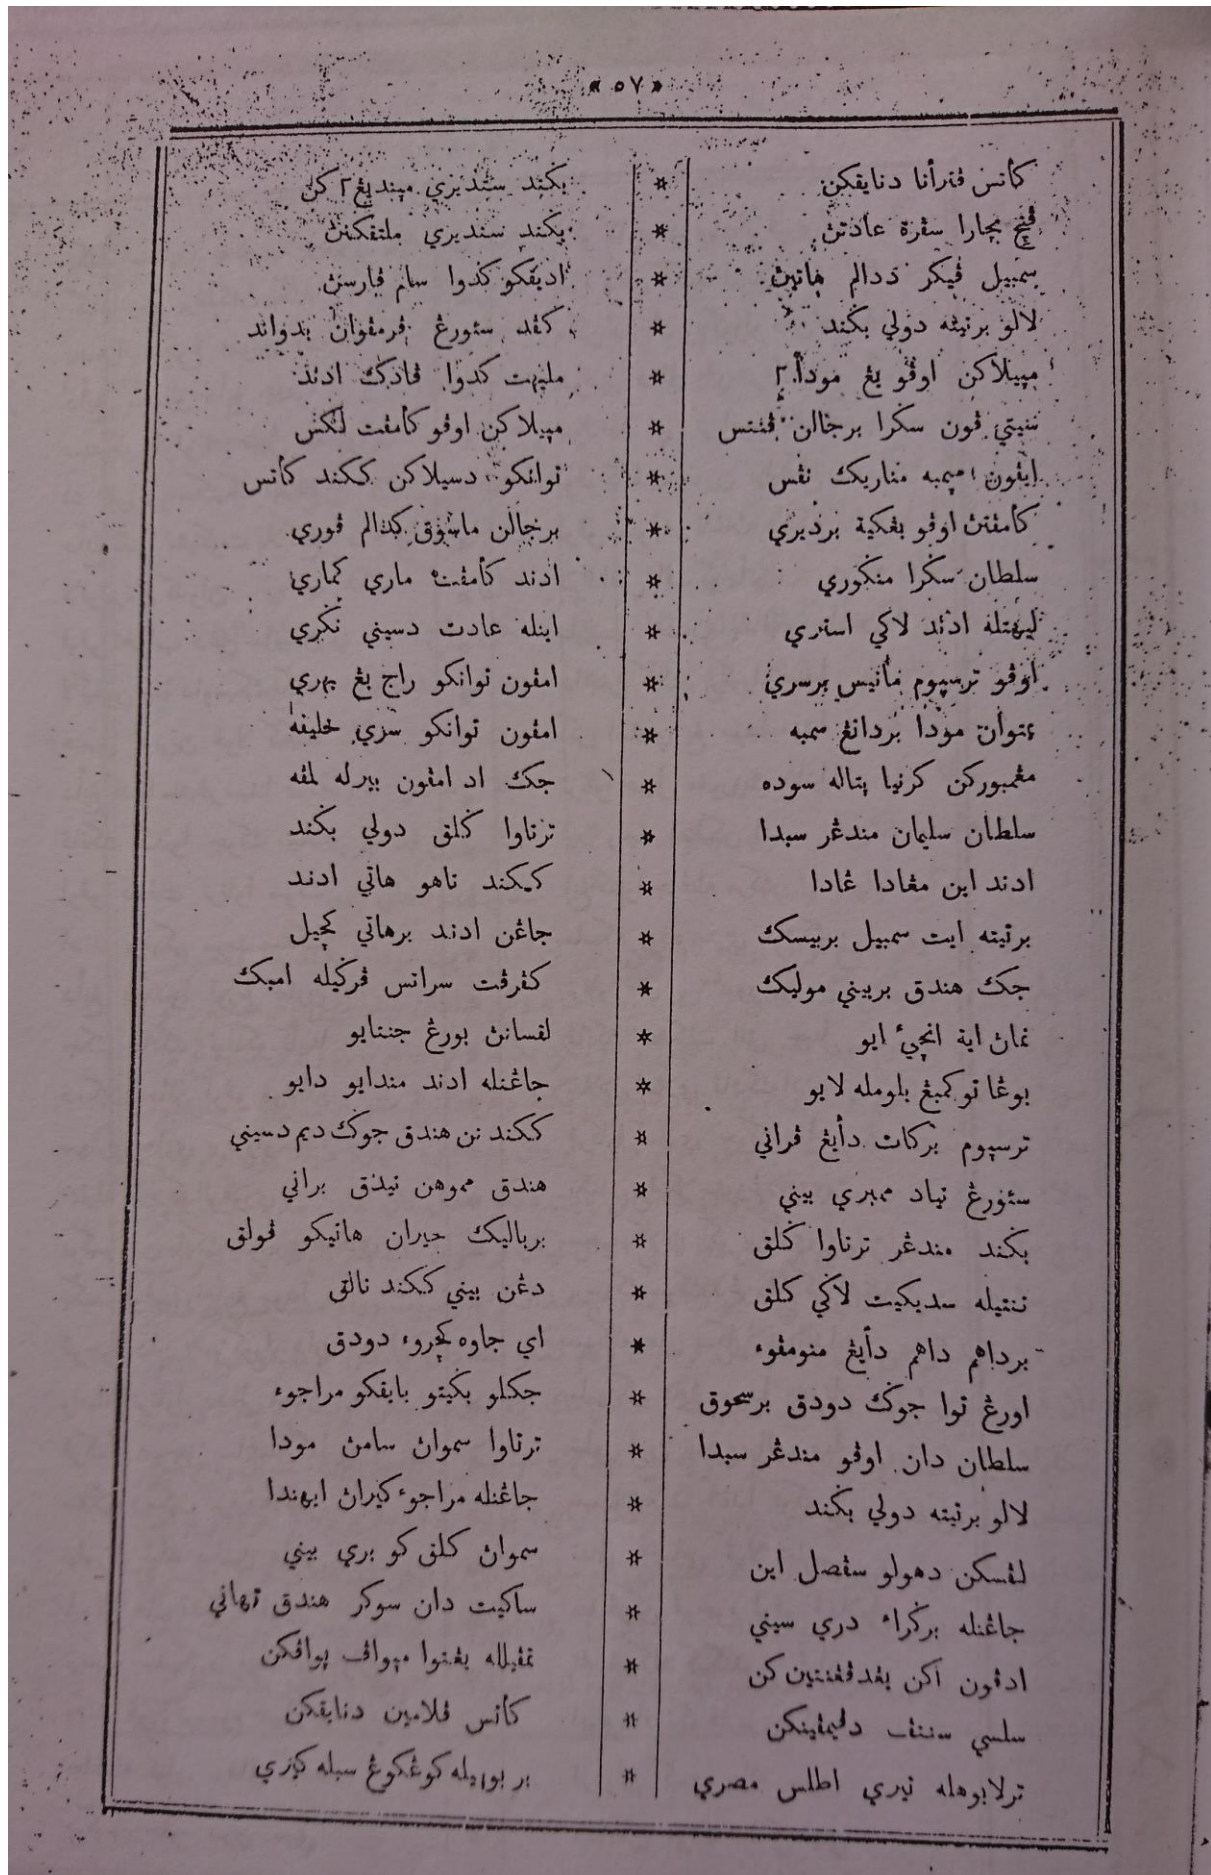 «٥٧»
كأتس ڤترأنا دنايقكن * بݢند سنديري مپنديڠ٢كن
ڤنچ بچارا سڤرة عادتڽ * بݢند سنديري ملتقكنڽ
سمبيل ڤيكر ددالم هاتيڽ * اديقكو كدوا سام ڤارسڽ
لالو برتيته دولي بݢند * كڤد سئورڠ ڤرمڤوان بدواند
مپيلاكن اوڤو يڠ مودا٢ * مليهت كدوا ڤادك ادند
سيتي ڤون سݢرا برجالن ڤنتس * مپيلاكن اوڤو كأمڤت لݢس
ايڤون مپمبه مناريك نڤس * توانكو دسيلاكن ككند كأتس
كأمڤتڽ اوڤو بڠكية برديري * برجالن ماسوق كدالم ڤوري
سلطان سݢرا منݢوري * ادند كأمڤت ماري كماري
ليهتله ادند لاكي استري * اينله عادت دسيني نݢري
اوڤو ترسپوم مانيس برسري * امڤون توانكو راج يڠ بهري
بتوان مودا بردانڠ سمبه * امڤون توانكو سري خليفه
مڠمبوركن كرنيا بتاله سوده * جك اد امڤون بيرله لمڤه
سلطان سليمان مندڠر سبدا * ترتاوا ݢلق دولي بݢند
ادند اين مڠادا ڠادا * ككند تاهو هاتي ادند
برتيته ايت سمبيل بربيسك * جاڠن ادند برهاتي كچيل
جك هندق بربيني موليك * كڤرڤت سراتس ڤرݢيله امبك
نماڽ اية انچيء ايو * لڤساناڽ بورڠ جنتايو
بوڠا توكمبڠ بلومله لايو * جاڠنله ادند مندايو دايو
ترسپوم بركات دأيڠ ڤراني * ككند نن هندق جوݢ ديم دسيني
سئورڠ تياد ممبري بيني * هندق مموهن تيدق براني
بݢند مندڠر ترتاوا ݢلق * برباليك حيران هاتيكو ڤولق
ننتيله سديكيت لاݢي كلق * دڠن بيني ككند تالق
برداهم داهم دأيڠ منومڤوء * اي جاوه كچروء دودق
اورڠ توا جوݢ دودق برسحوق * جكلو بݢيتو بايقكو مراجوء
سلطان دان اوڤو مندڠر سبدا * ترتاوا سموان سامڽ مودا
لالو برتيته دولي بݢند * جاڠنله مراجوء كيراڽ ايهندا
لڤسكن دهولو سڤصل اين * سمواڽ كلق كو بري بيني
جاڠنله برݢراء دري سيني * ساكيت دان سوكر هندق تهاني
ادڤون اكن بڤد ڤڠنتين كن * تمڤيلله بڠتوا مپواڤ پواڤكن
سلسي سنتڤ دليمڤينكن * كأتس ڤلامين دنايقكن
ترلابوهله تيري اطلس مصري * بر بوڽيله كوڠكوڠ سبله كيري